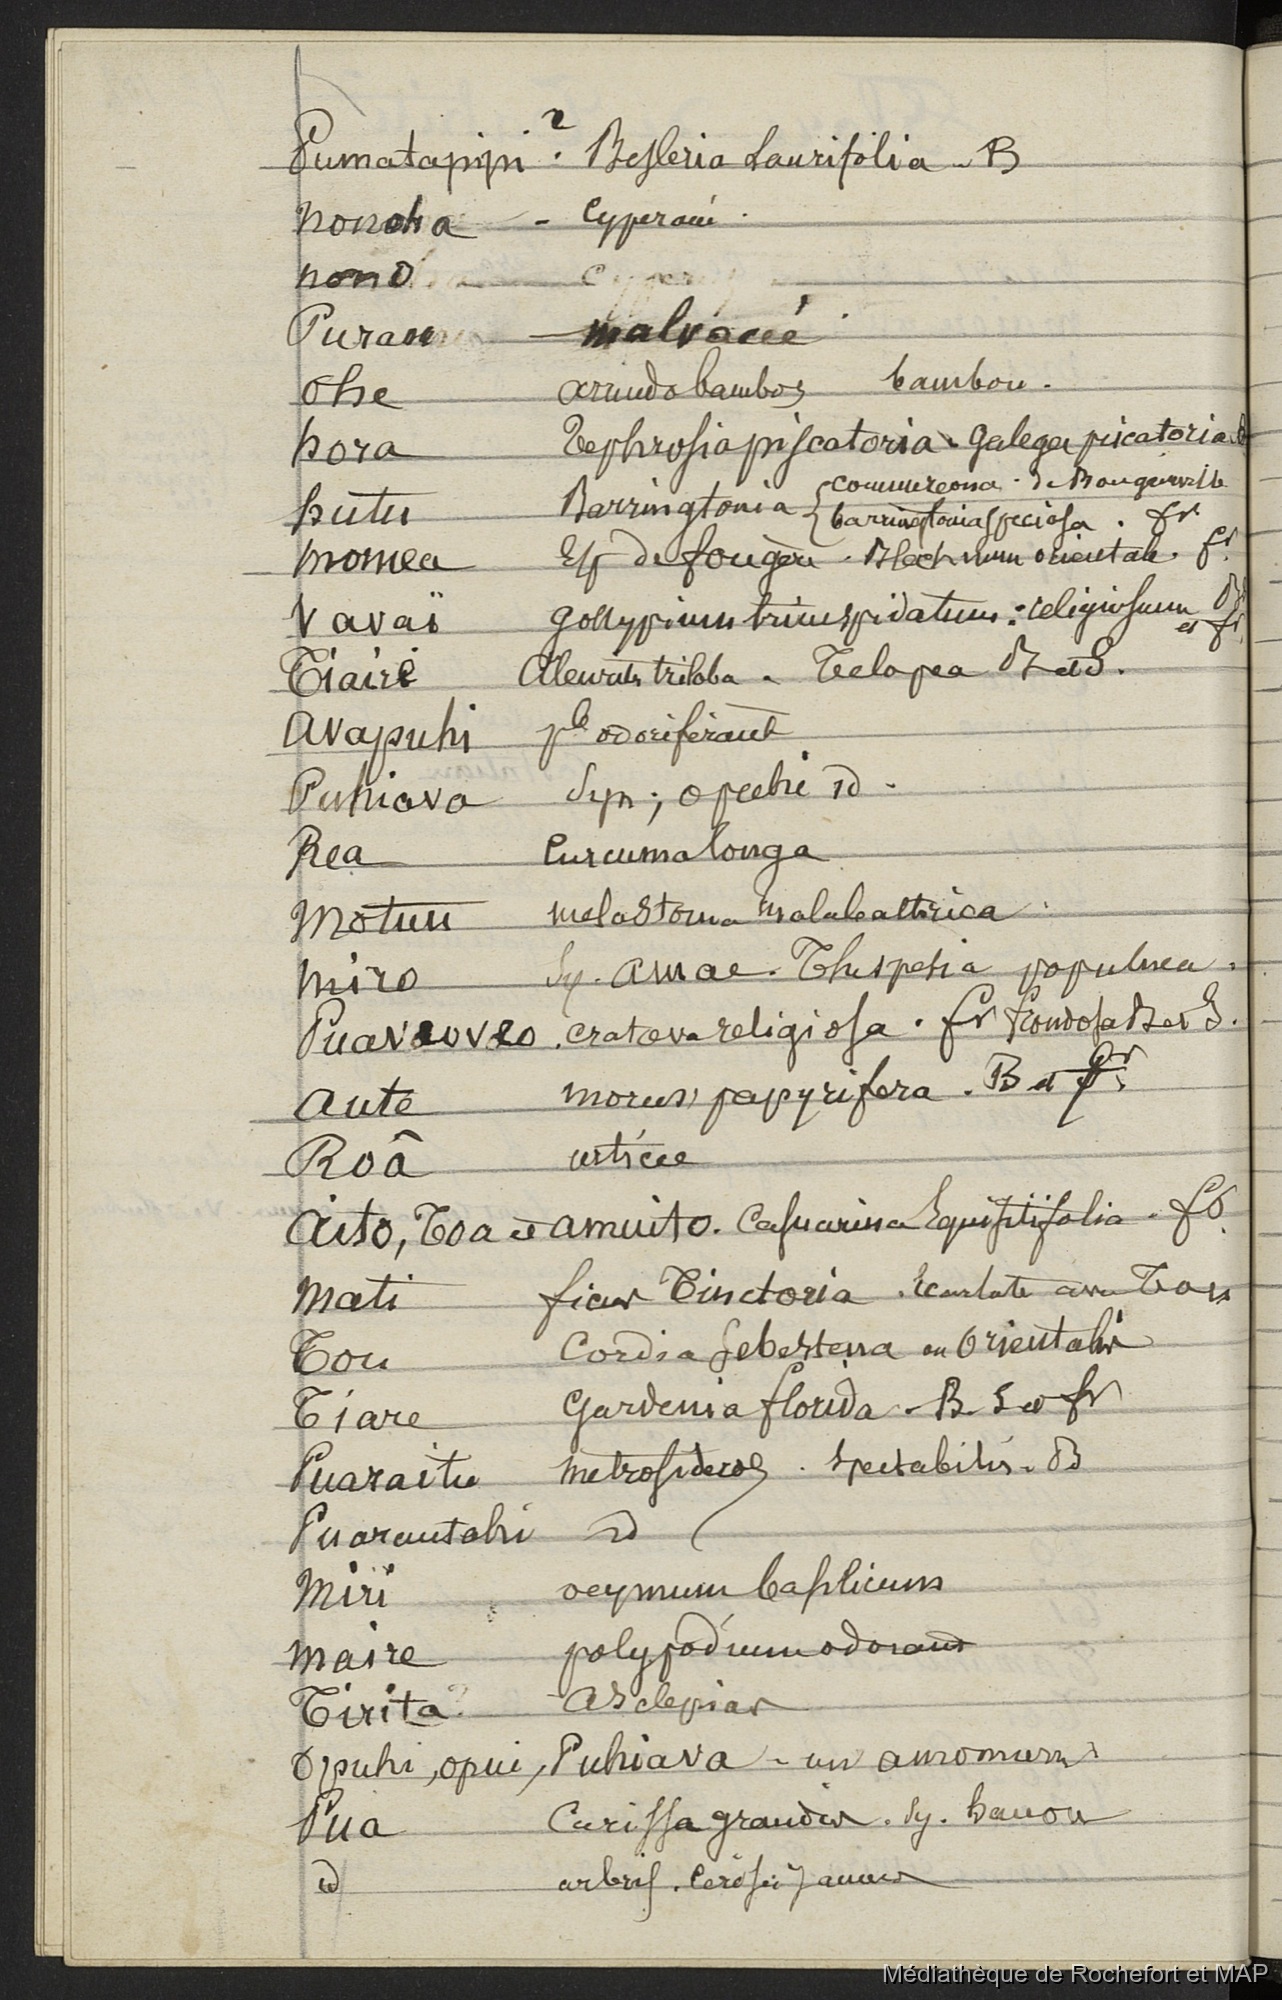 Pumatapipi ? Besleria Laurifolia - B
nonoha - Cyperacé.
nono
Purau malvacéé
Ohe arundo bambos bambou.
hora Tephrosia piscatoria. Galega piscatoria
hutu Barringtonia { commersona. de Bougainville
barringtonia speciosa. fr
momea Esp de fougère. Blechnum orientale. fr.
Vavaï Gossypium tricuspidatum: religiosum B
et fr.
Tiairi Aleurites triloba. Telopea B et S.
Avapuhi pte odoriférante
Puhiava Syn; opuhi id.
Rea Curcuma longa
Motuu melastoma malabathrica
Miro Sy. amae. Thespesia populnea.
Puaveoveo. crataeva religiosa. fr frondosa B et S.
Aute morus papyrifera. B et fr.
Roâ urticée
Aito, Toa et amuito. Casuarina Equisitifolia. fr.
Mati ficus Tinctoria. Ecarlate avec Tou
Tou Cordia sebestena ou Orientalis
Tiare Gardenia florida. B. S et fr
Puaraitu metrosideros. spectabilis. B
Puarautahi id
Miri ocymum basilicum
Maire polypodium odorant
Tirita? Asclepias
Opuhi, opui, Puhiava - un amomum
Pua Carissa grandis. Sy. hauou
id arbris.